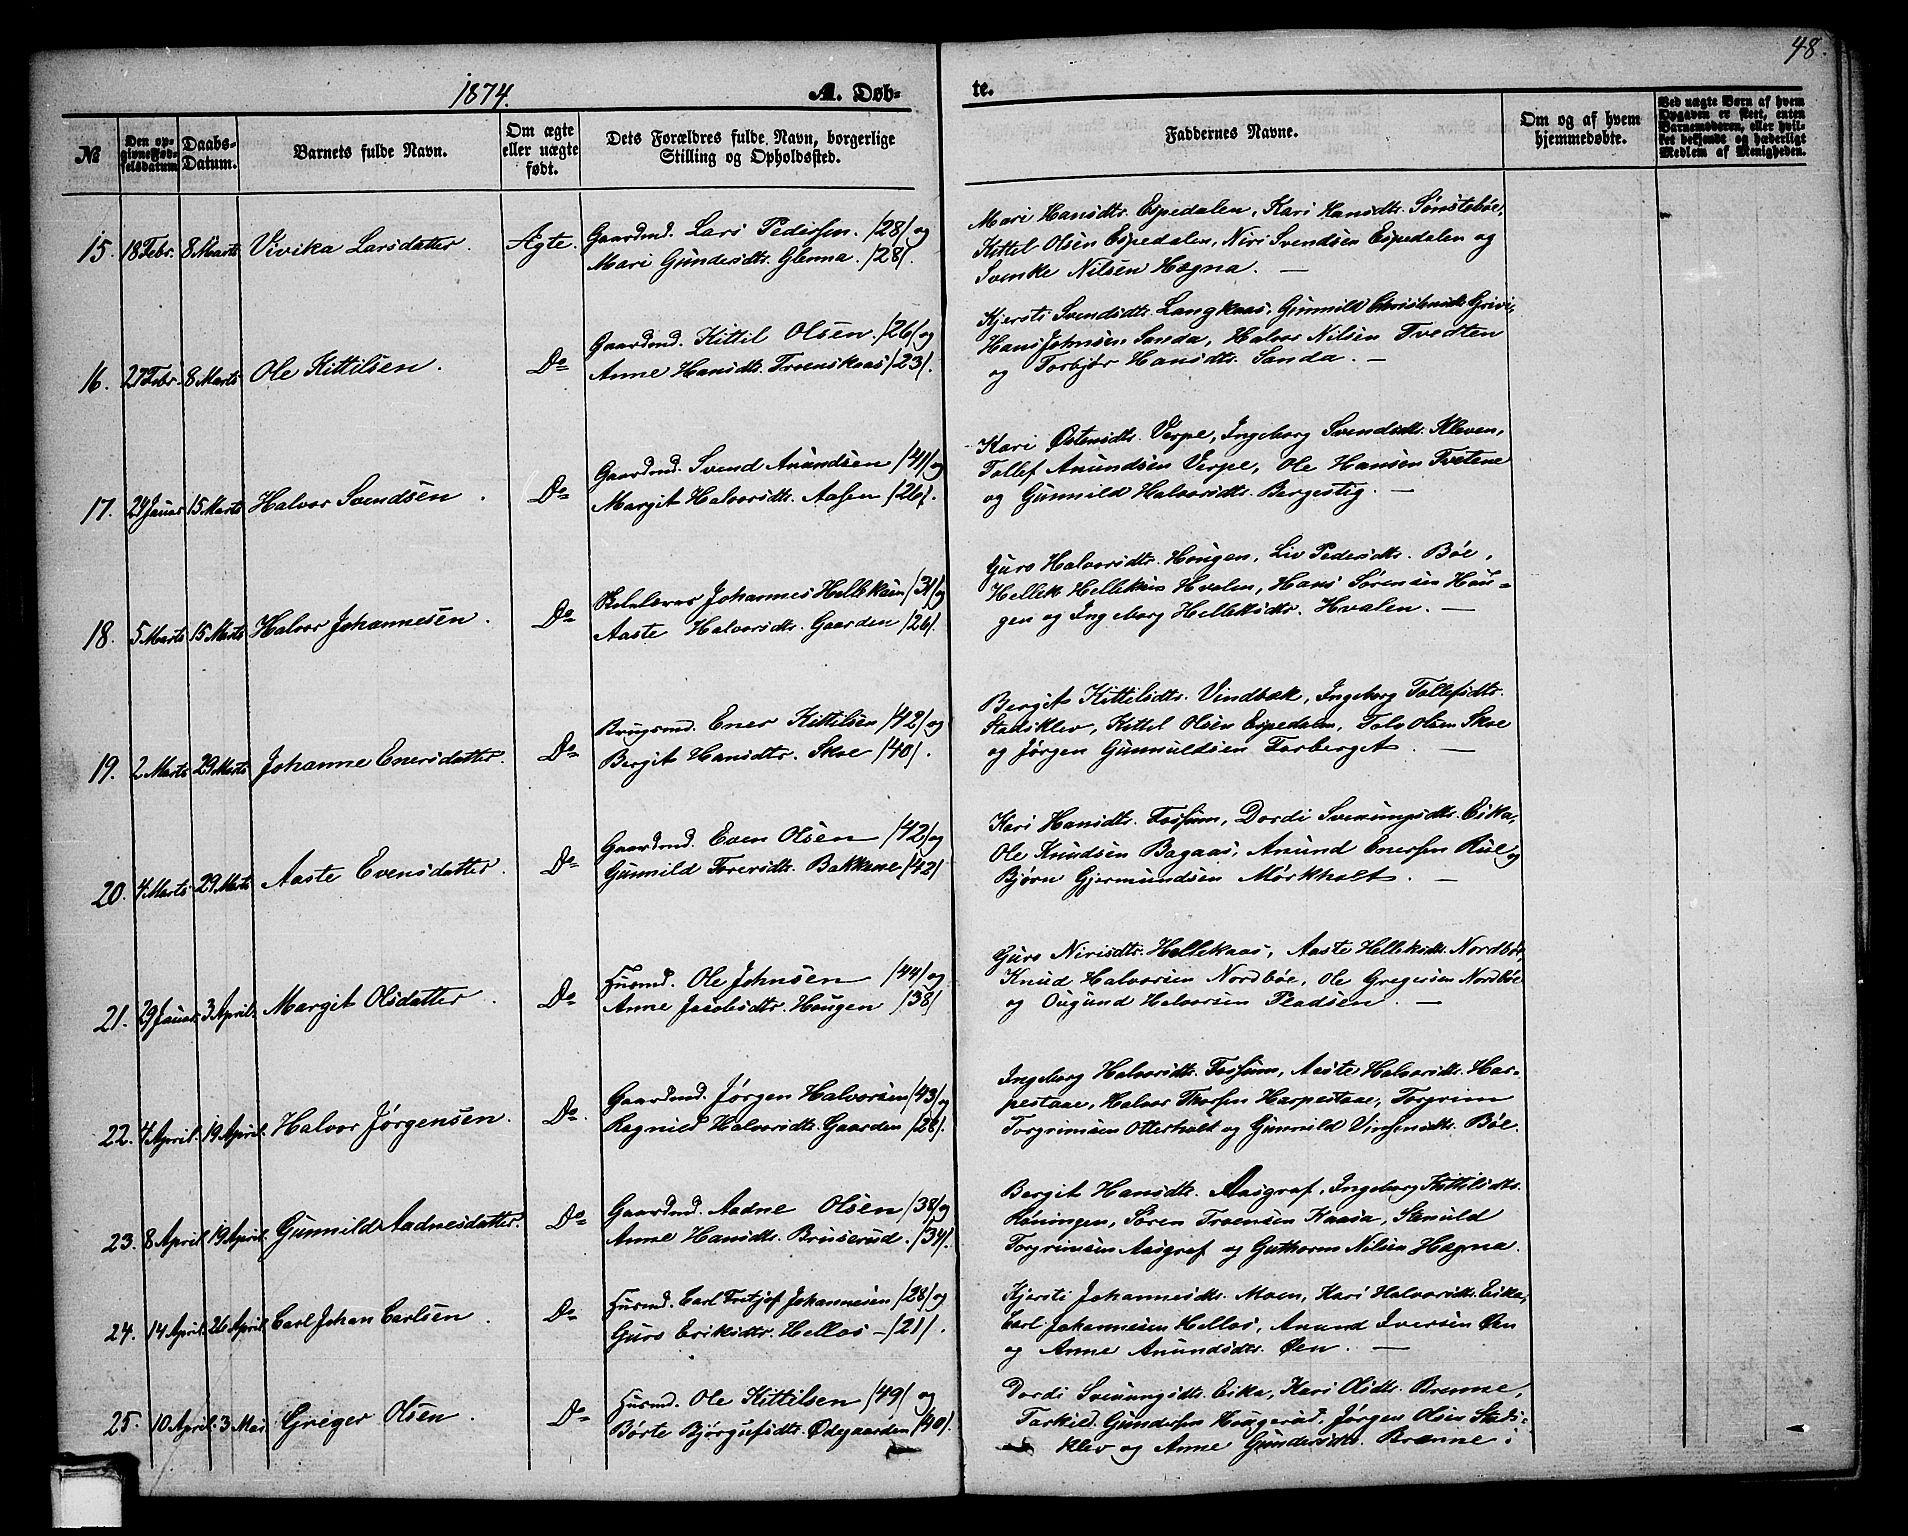 48.
1874.
A. Døb-
te.
№
Den op-
givne Fød-
selsdatum
Daabs-
Datum.
Barnets fulde Navn.
Om ægte
eller uægte
født.
Dets Forældres fulde Navn, borgerlige
Stilling og Opholdssted.
Faddernes Navne.
Om og af hvem
hjemmedøbte.
Ved uægte Børn af hvem
Opgaven er skeet, enten
Barnemoderen, eller hvil-
ket berfende og hæderligt
Medlem af Menigheden.
15. 18 Febr. 8 Marts Vivika Larsdatter. Ægte.
Gaardmd. Lars Pedersen. /28/ og
Mari Gundersdtr. Glenna. /28/.
Mari Hansdtr. Espedalen, Kari Hansdtr. Sønstebøe,
Kittel Olsen Espedalen, Niri Svendsen Espedalen og
Svenke Nilsen Hægna. —
16. 27 Febr. 8 Marts Ole Kittilsen. Do
Gaardmd. Kittil Olsen. /26/ og
Anne Hansdtr. Troenskaas /23/.
Kjersti Svendsdtr. Langkaas, Gunnild Grivi,
Hans Johnsen Sanda, Halvor Nilsen Tvedten
og Torbjør Hansdtr. Sanda. —
17. 24 Januar 15 Marts Halvor Svendsen. Do
Gaardmd. Svend Anundsen /41/ og
Margit Halvorsdtr. Aasen /26/.
Kari Østensdtr. Verpe, Ingeborg Svendsdtr. Kleven,
Tollef Anundsen Verpe, Ole Hansen Tvetene
og Gunnild Halvorsdtr. Bergestig. —
18. 5 Marts 15 Marts Halvor Johannesen. Do
Johannes Helleksen /31/ og
Aaste Halvorsdtr. Gaarden /26/.
Guro Halvorsdtr. Hougen, Liv Pedersdtr. Bøe,
Hellek Helleksen Hvalen, Hans Sørensen Hou-
gen og Ingeborg Helleksdtr. Hvalen. —
19. 2 Marts 29 Marts Johanne Enersdatter. Do
Brugsmd. Ener Kittilsen /42/ og
Bergit Hansdtr. Skoe /40/.
Bergit Kittilsdtr. Vindbæk, Ingeborg Tollefsdtr.
Stadsklev, Kittel Olsen Espedalen, Tolv Olsen Skoe
og Jørgen Gunnuldsen Farberget. —
20. 4 Marts 29 Marts Aaste Evensdatter. Do
Gaardmd. Even Olsen /42/ og
Gunnild Toresdtr. Bakkane /42/
Kari Hansdtr. Fossum, Dordi Sveinungsdtr. Eika,
Ole Knudsen Bagaas, Anund Enersen Rue og
Bjørn Gjermundsen Mørkholt. —
21. 29 Januar 3 April. Margit Olsdatter. Do
Husmd. Ole Johnsen /44/ og
Anne Jacobsdtr. Hougen /38/
Guro Nirisdtr. Hellekaas, Aaste Helleksdtr. Nordbøe,
Knud Halvorsen Nordbøe, Ole Gregersen Nordbøe
og Ougund Halvorsen Pladsen. —
22. 4 April. 19 April. Halvor Jørgensen. Do.
Gaardmd. Jørgen Halvorsen /43/ og
Ragnild Halvorsdtr. Gaarden /28/.
Ingeborg Halvorsdtr. Fossum, Aaste Halvorsdtr. Har-
pestaae, Halvor Thorsen Harpestaae, Torgrim
Torgrimsen Otterholt og Gunnild Bøe.
23. 8 April. 19 April. Gunnild Aadnesdatter. Do
Gaardmd. Aadne Olsen /38/ og
Anne Hansdtr. Bruserud. /34/.
Bergit Hansdtr. Aasgraf, Ingeborg Kittilsdtr.
Røningen, Søren Troensen Kaasa, Stenuld
Torgrimsen Aasgraf og Guthorm Nilsen Hægna.
24. 14 April. 26 April. Carl Johan Carlsen. Do
Husmd. Carl Fritjof Johannesen /28/ og
Guro Eriksdtr. Hellos —/21/.
Kjersti Johannesdtr. Moen, Kari Halvorsdtr. Eika,
Carl Johannesen Hellos, Anund Iversen Øen
og Anne Anundsdtr. Øen. —
25. 10 April. 3 Mai. Greger Olsen. Do
Husmd. Ole Kittilsen /49/ og
Børte Bjørgufsdtr. Ødegaarden /40/.
Dordi Sveinungsdtr. Eika, Kari Olsdtr. Brenne,
Tarkild Gundersen Hougerud, Jørgen Olsen Stads-
klev og Anne Gundersdtr. Brenne.